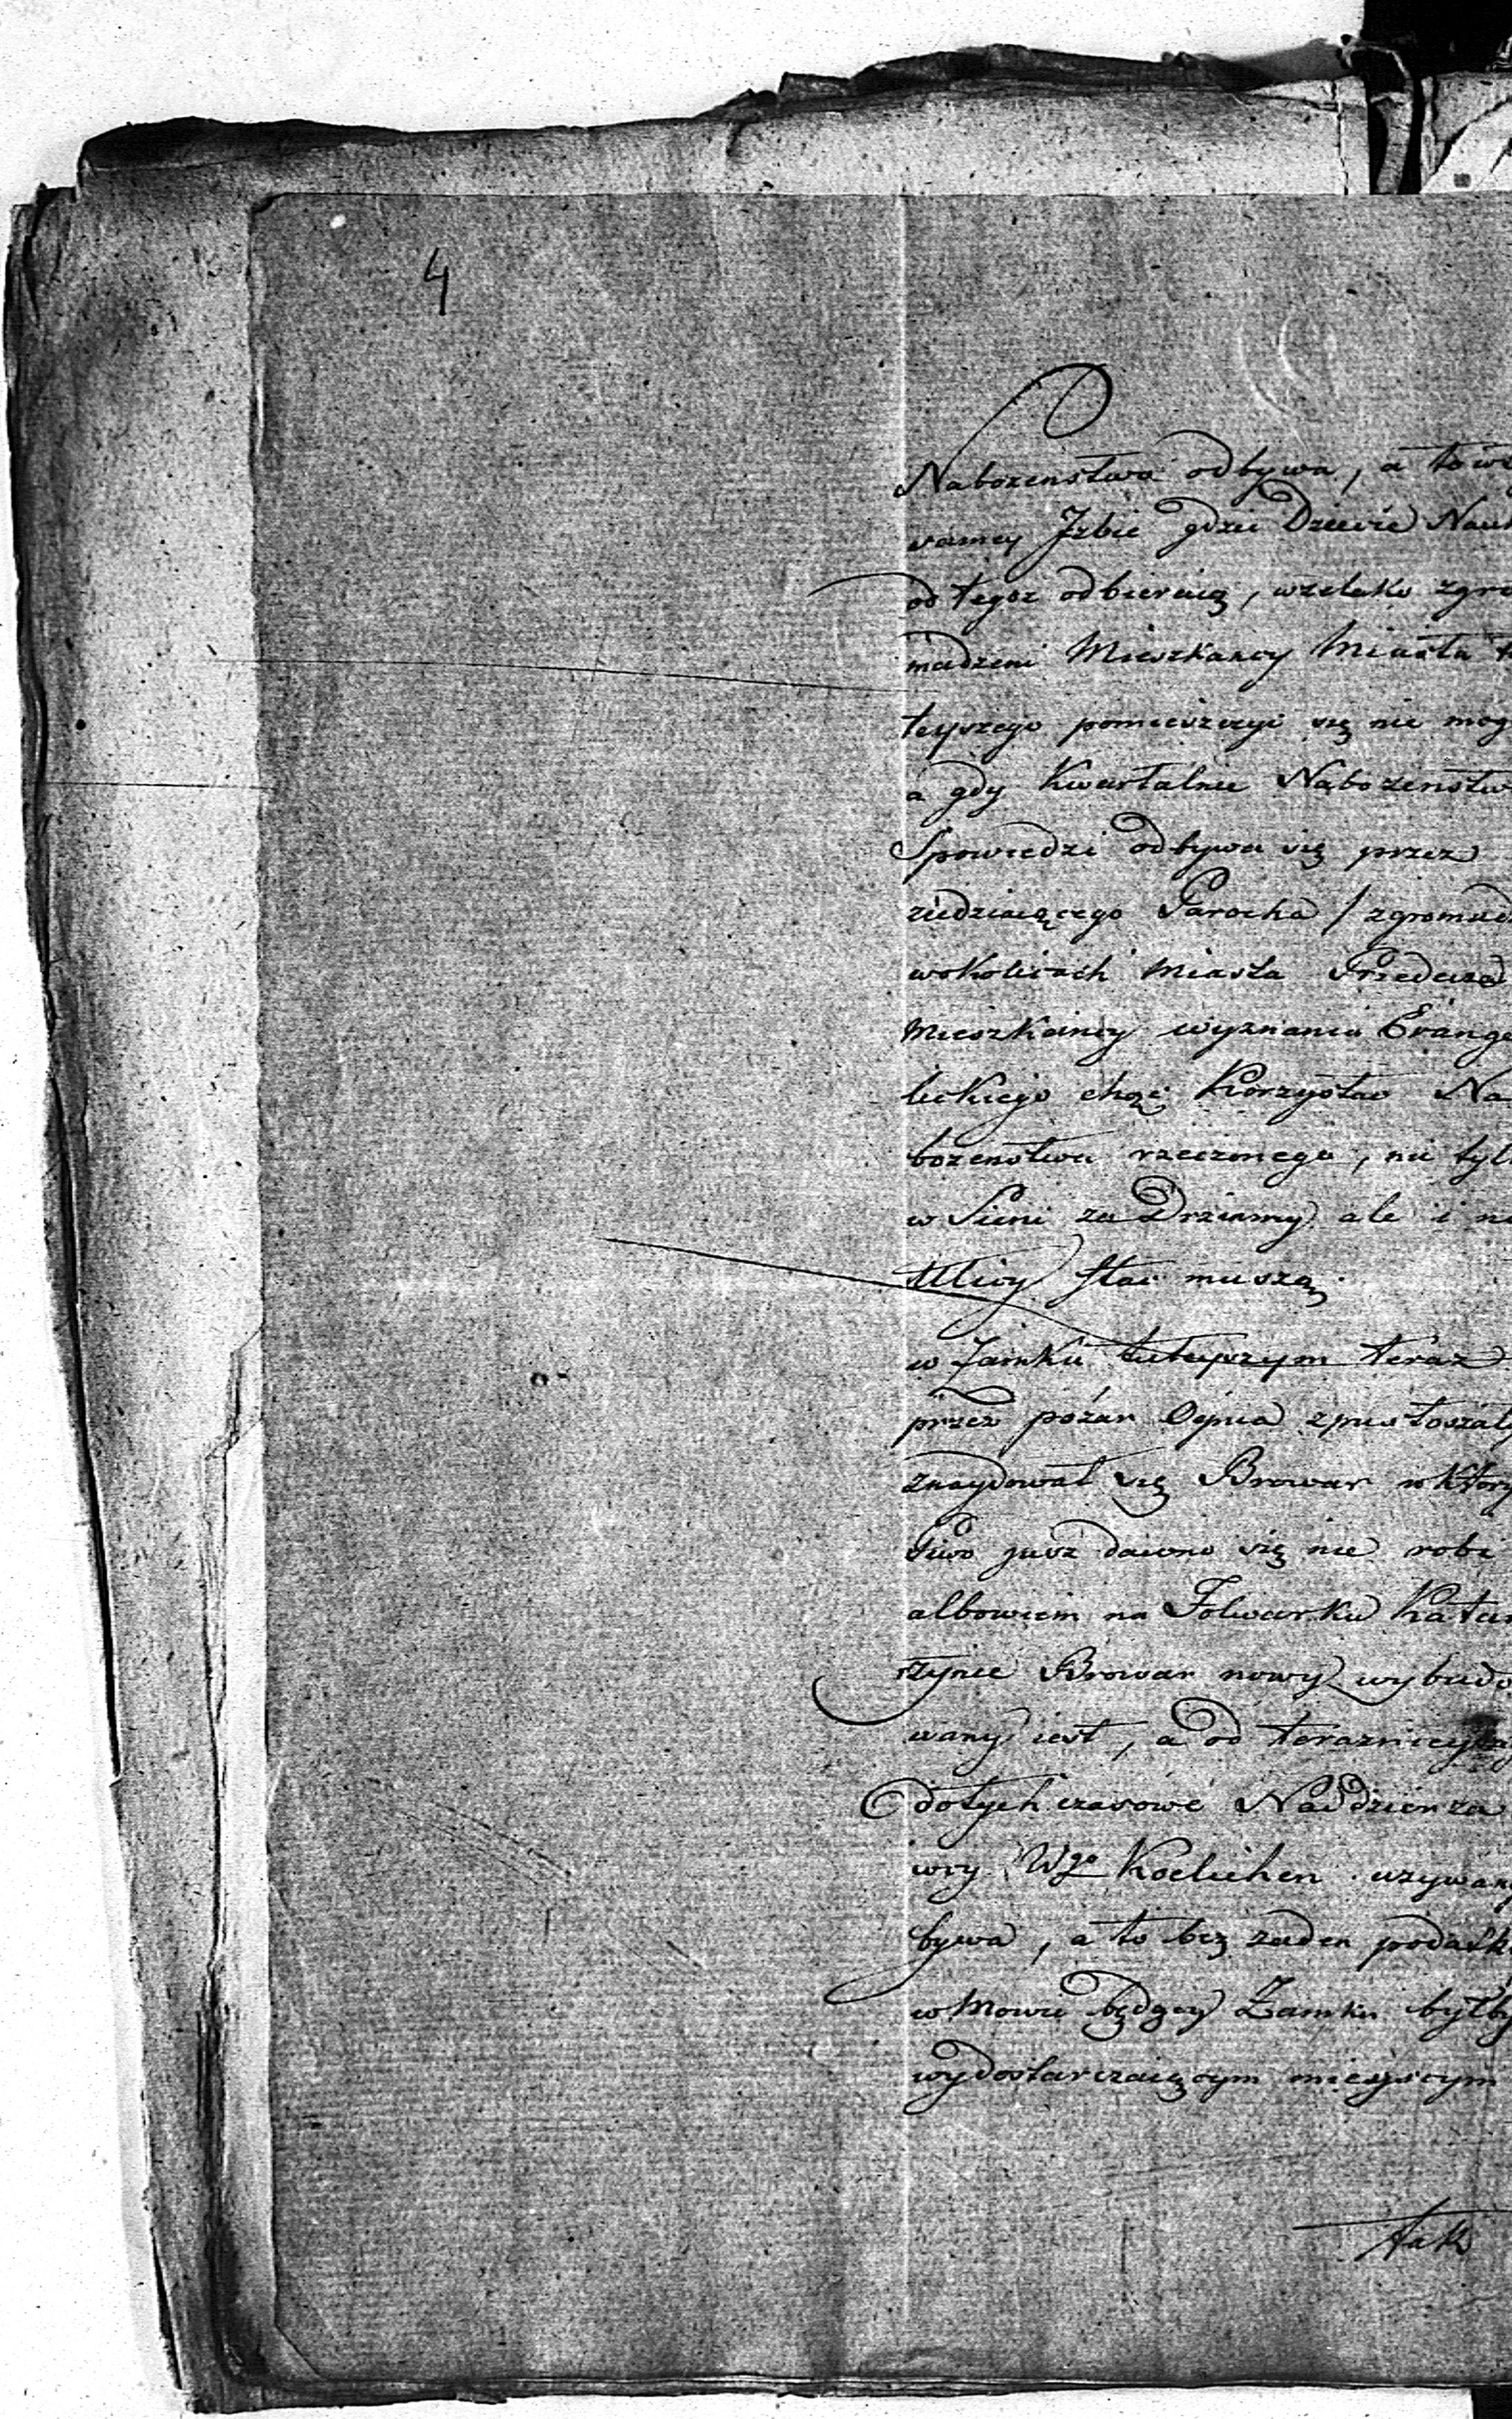 4
Nabozenstwa odbywa, a tow
samey Jzbie gdzie Dziecie Nau
od tegoz odbieraią, wzelako zgro
madzeni Mieszkancy Miasta t
teyszego pomieszczyć się nie mog
a gdy Kwartalnie Nabozenstw
Spowiedzi odbywa się przez
ziedziaiącego Parocha / zgromad
wokolicach Miasta Przedecza
Mieszkancy wyznania Evange
lickiego chcąc Korzystac Na
bozenstwa rzeczonego, nie tyl
w Sieni za Drziamy ale i n
Ulicy stac muszą.
w Zamku tuteyszym teraz
przez pożar Ognia zpustoszał
znaydował się Browar w Ktory
Piwo jusz dawno się nie robi
albowiem na Folwarku Kata
rzynie Browar nowy wybudo
wany iest, a od teraznieysz
dotychczasowe Naddzierza
wcy Wgo Koelichen uzywan
bywa, a to bez zaden podatk
w Mowie będący Zamku byłby
wydostarczaiącym mieyscym
tak